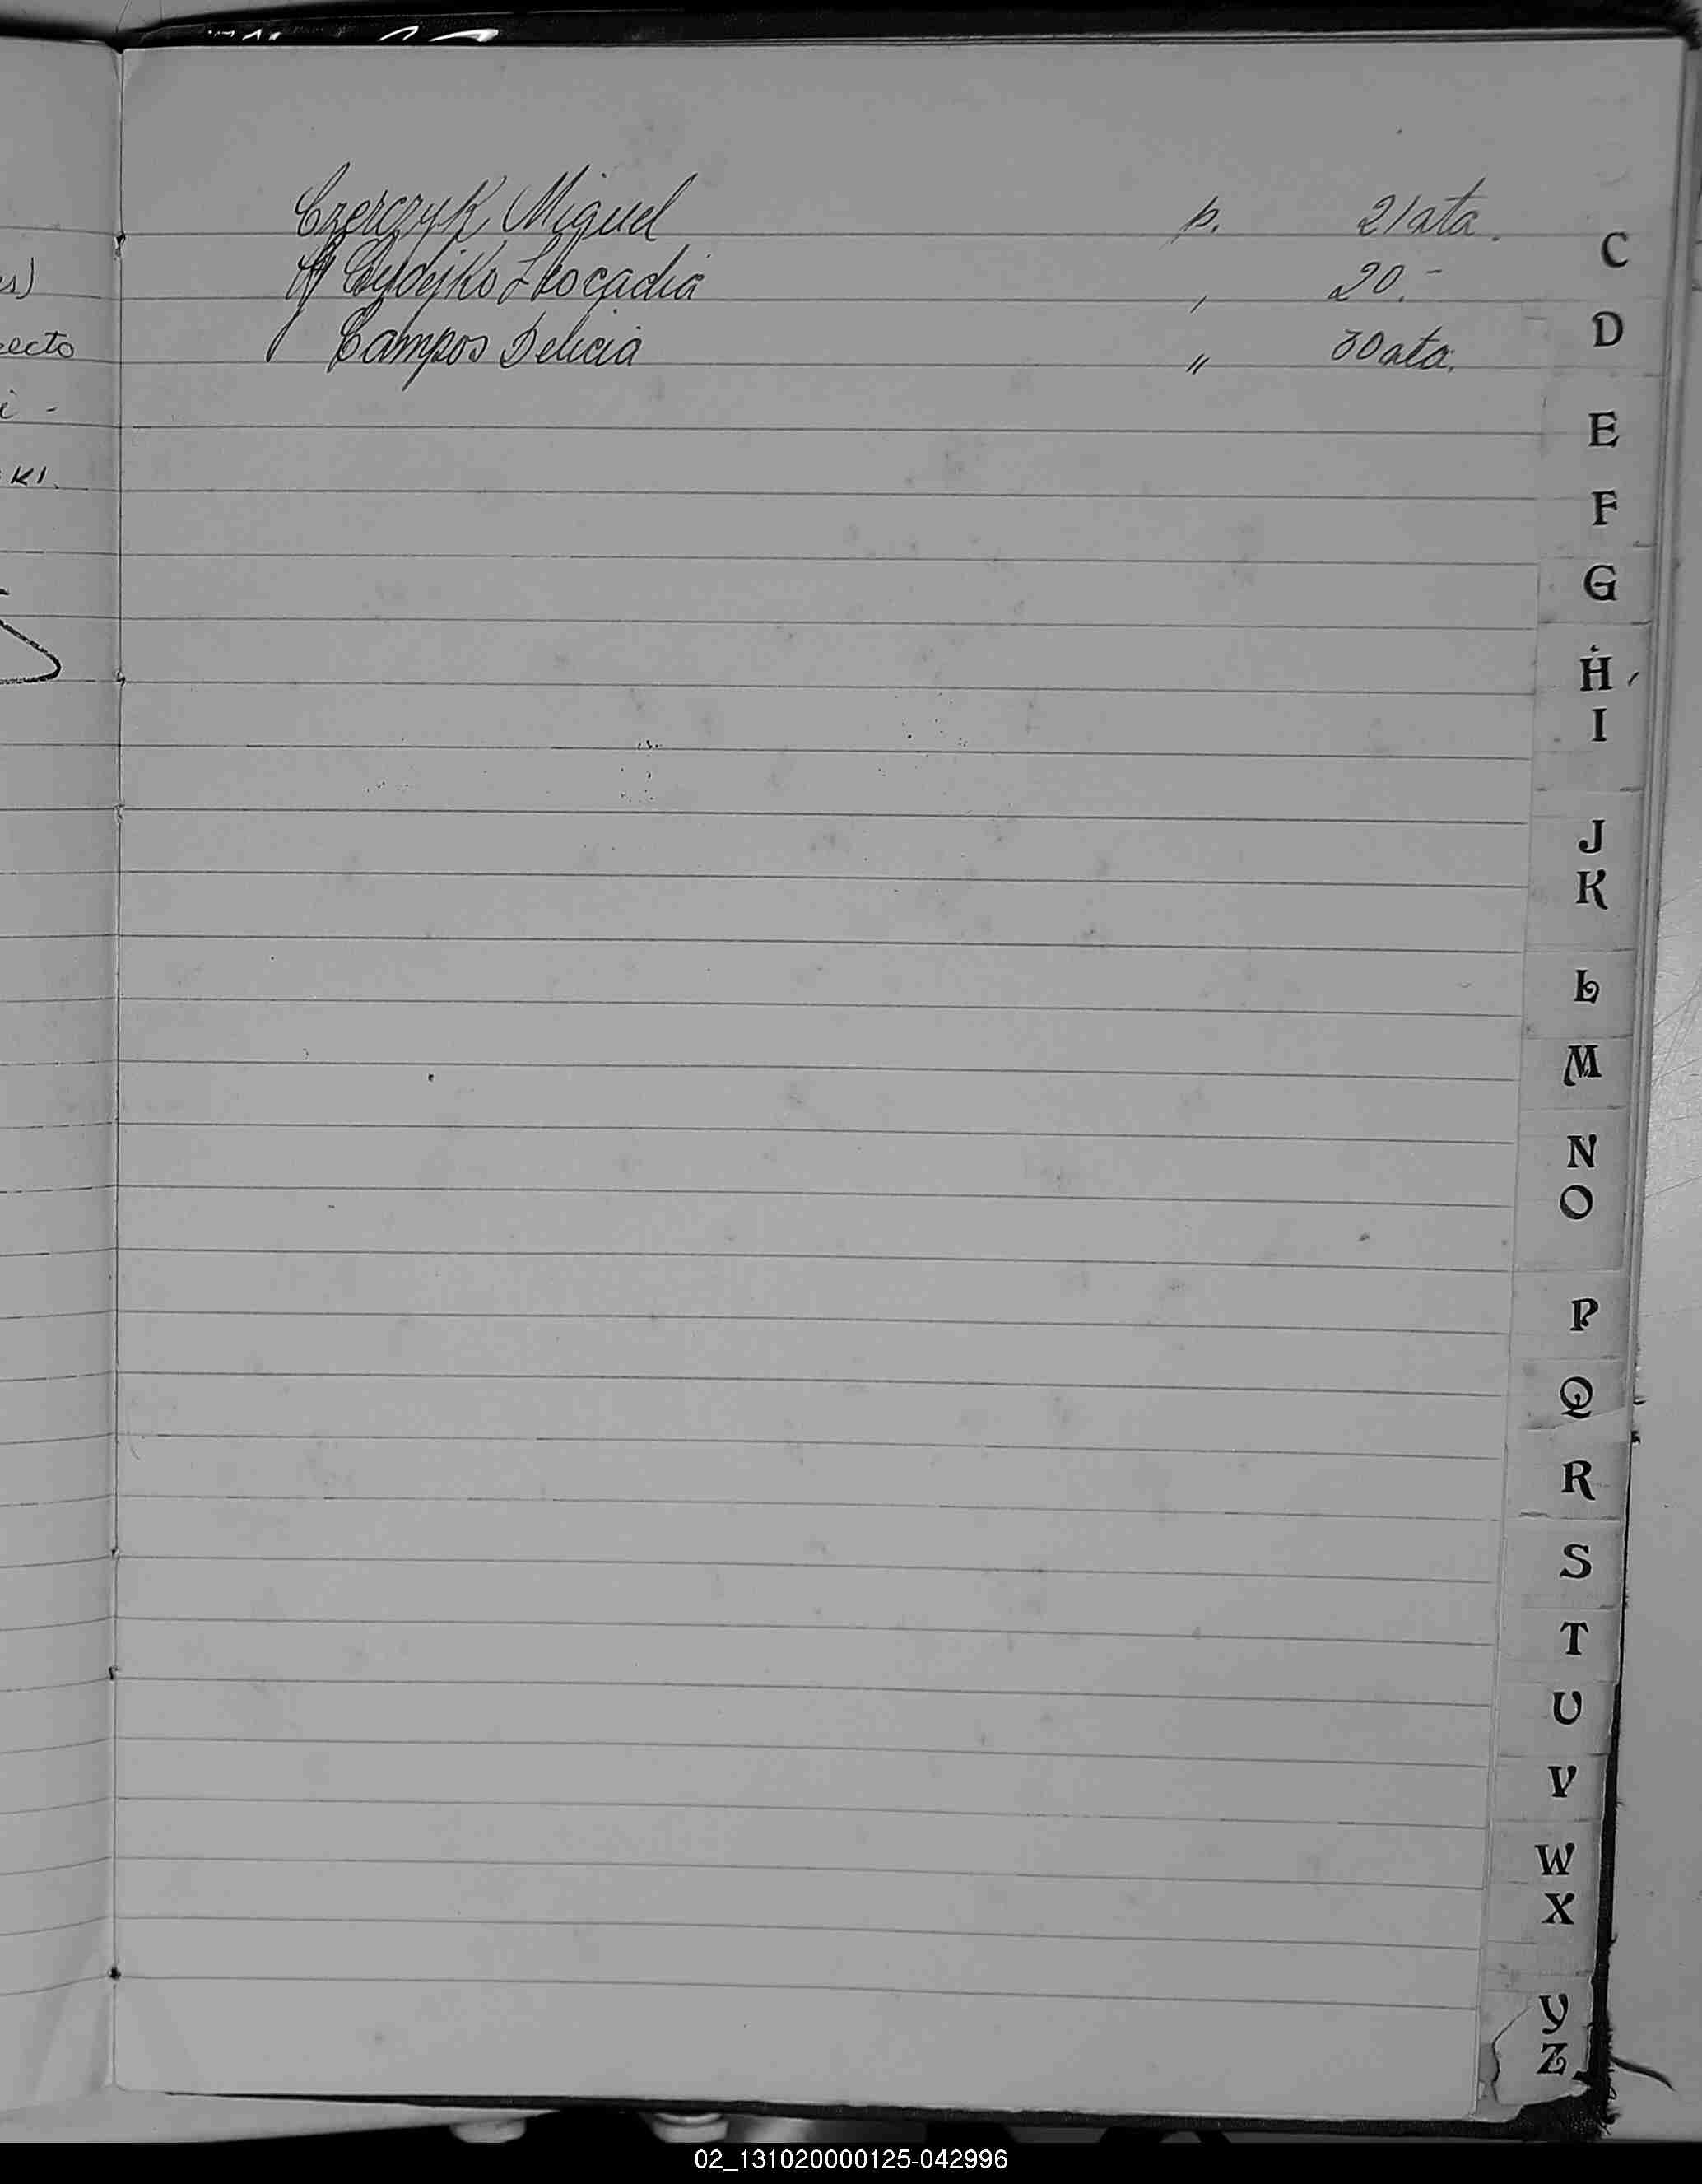 s)
ecto
i -
KI.
Czerczyk Miguel p. 21 ata.
Leocadia , 20.-
Campos Delicia " 30 ata.
C
D
E
F
G
H
I
J
K
L
M
N
O
P
Q
R
S
T
U
V
W
X
Y
Z
02_131020000125-042996